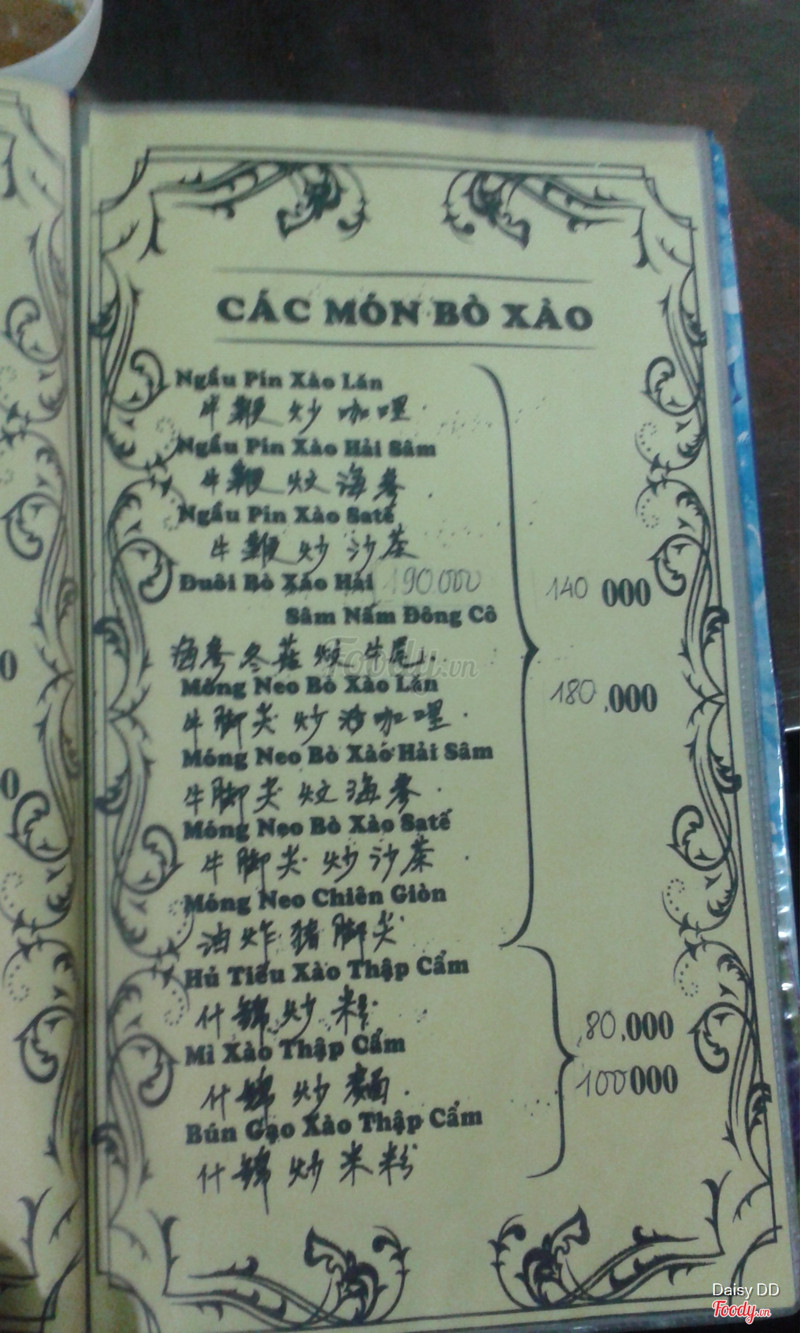 CÁC MÓN BÒ XÀO
Ngẩu Pín Xào Lăn
牛鞭炒咖哩
Ngẩu Pín Xào Hải Sâm
牛鞭炆海參
Ngẩu Pín Xào Satế
牛鞭炒沙茶
Đuôi Bò Xáo Hải 190.000
Sâm Nấm Đông Cô
140 000
海參冬菇炆牛尾
Móng Neo Bò Xào Lăn
180.000
牛脚尖炒沙咖哩
Móng Neo Bò Xào Hải Sâm
牛脚尖炆海參
Móng Neo Bò Xào Satế
牛脚尖炒沙茶
Móng Neo Chiên Giòn
油炸猪脚尖
Hủ Tiếu Xào Thập Cẩm
什錦炒粉
80.000
Mì Xào Thập Cẩm
100 000
什錦炒麵
Bún Gạo Xào Thập Cẩm
什錦炒米粉
Foody.vn
Daisy DD
Foody.vn